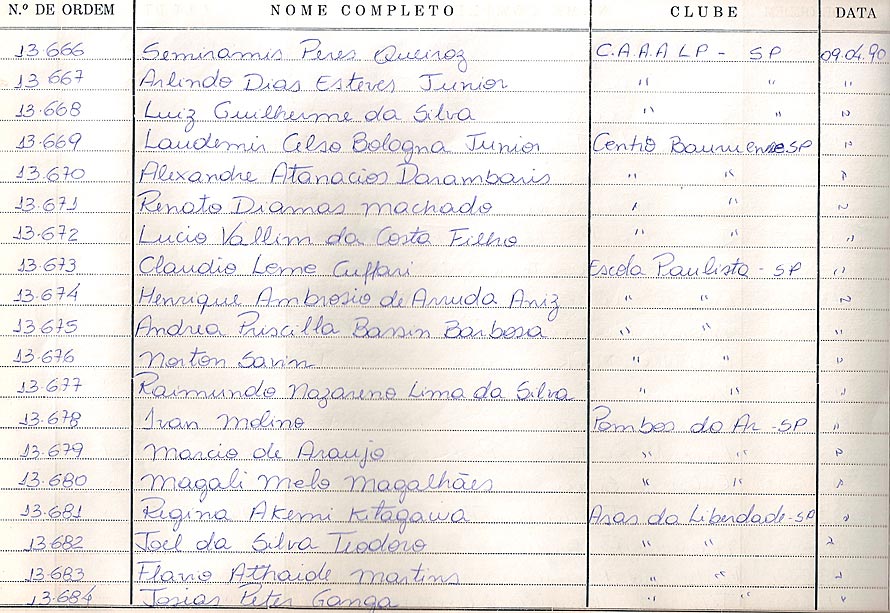 N.º DE ORDEM NOME COMPLETO CLUBE DATA
13.666 Semiramis Peres Queiroz C.A.A.A LP - SP 09.04.90
13.667 Arlindo Dias Esteves Junior " " "
13.668 Luiz Guilherme da Silva " " "
13.669 Laudemir Celso Bologna Junior Centro Bauruense SP "
13.670 Alexandre Atanacios Darambaris " " "
13.671 Renato Diamas machado " " "
13.672 Lucio Vallim da Costa Filho " " "
13.673 Claudio Leme Escola Paulista - SP "
13.674 Henrique Ambrosio de Arruda " " "
13.675 Andrea Priscilla Barbosa " " "
13.676 Norton Savin " " "
13.677 Raimundo Nazareno Lima da Silva " " "
13.678 Ivan Molino Pombos do Ar - SP "
13.679 Marcio de Araujo " " "
13.680 Magali Melo Magalhães " " "
13.681 Regina Akemi Kitagawa Asas da Liberdade - SP "
13.682 Joel da Silva Teodoro " " "
13.683 Flavio Athaide Martins " " "
13.684 Josias Peter Ganga " " "